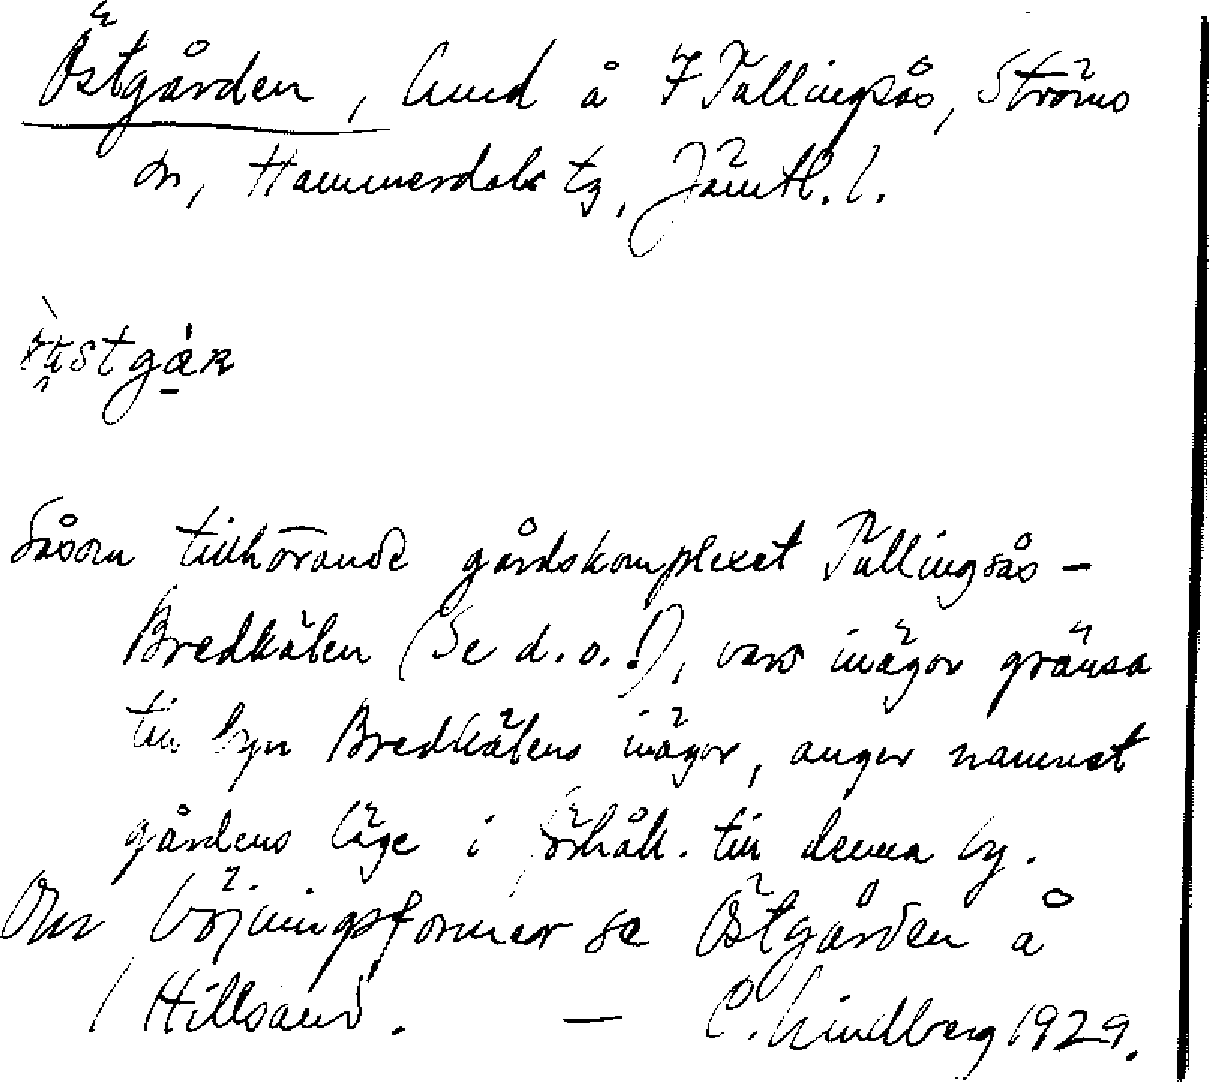 Östgården, hmd å 7 Tullingsås, Ströms
sn, Hammerdals tg, Jämtl. l.
Såsom tillhörande gårdskomplexet Tullingsås-
Bredkålen (Se d.o.!), vars inägor gränsa
till byn Bredkålens inägor, anger namnet
gårdens läge i förhåll. till denna by.
Om böjningsformer se Östgården å
1 Hillsand. — C. Lindberg 1929.